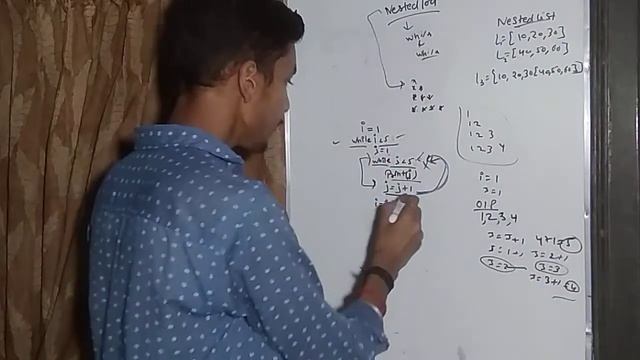 Nested loop
while
while
*
* *
* * *
* * * *
i = 1
while i<5
j=1
while j<5
print(j)
j=j+1
Nested list
L1=[10,20,30]
L2=[40,50,60]
L3=[10,20,30[40,50,60]]
1
1 2
1 2 3
1 2 3 4
i = 1
j=1
O/P
1,2,3,4
j=j+1
4+1=5
j=1+1
j=2+1
j=2
j=3
j=3+1=4